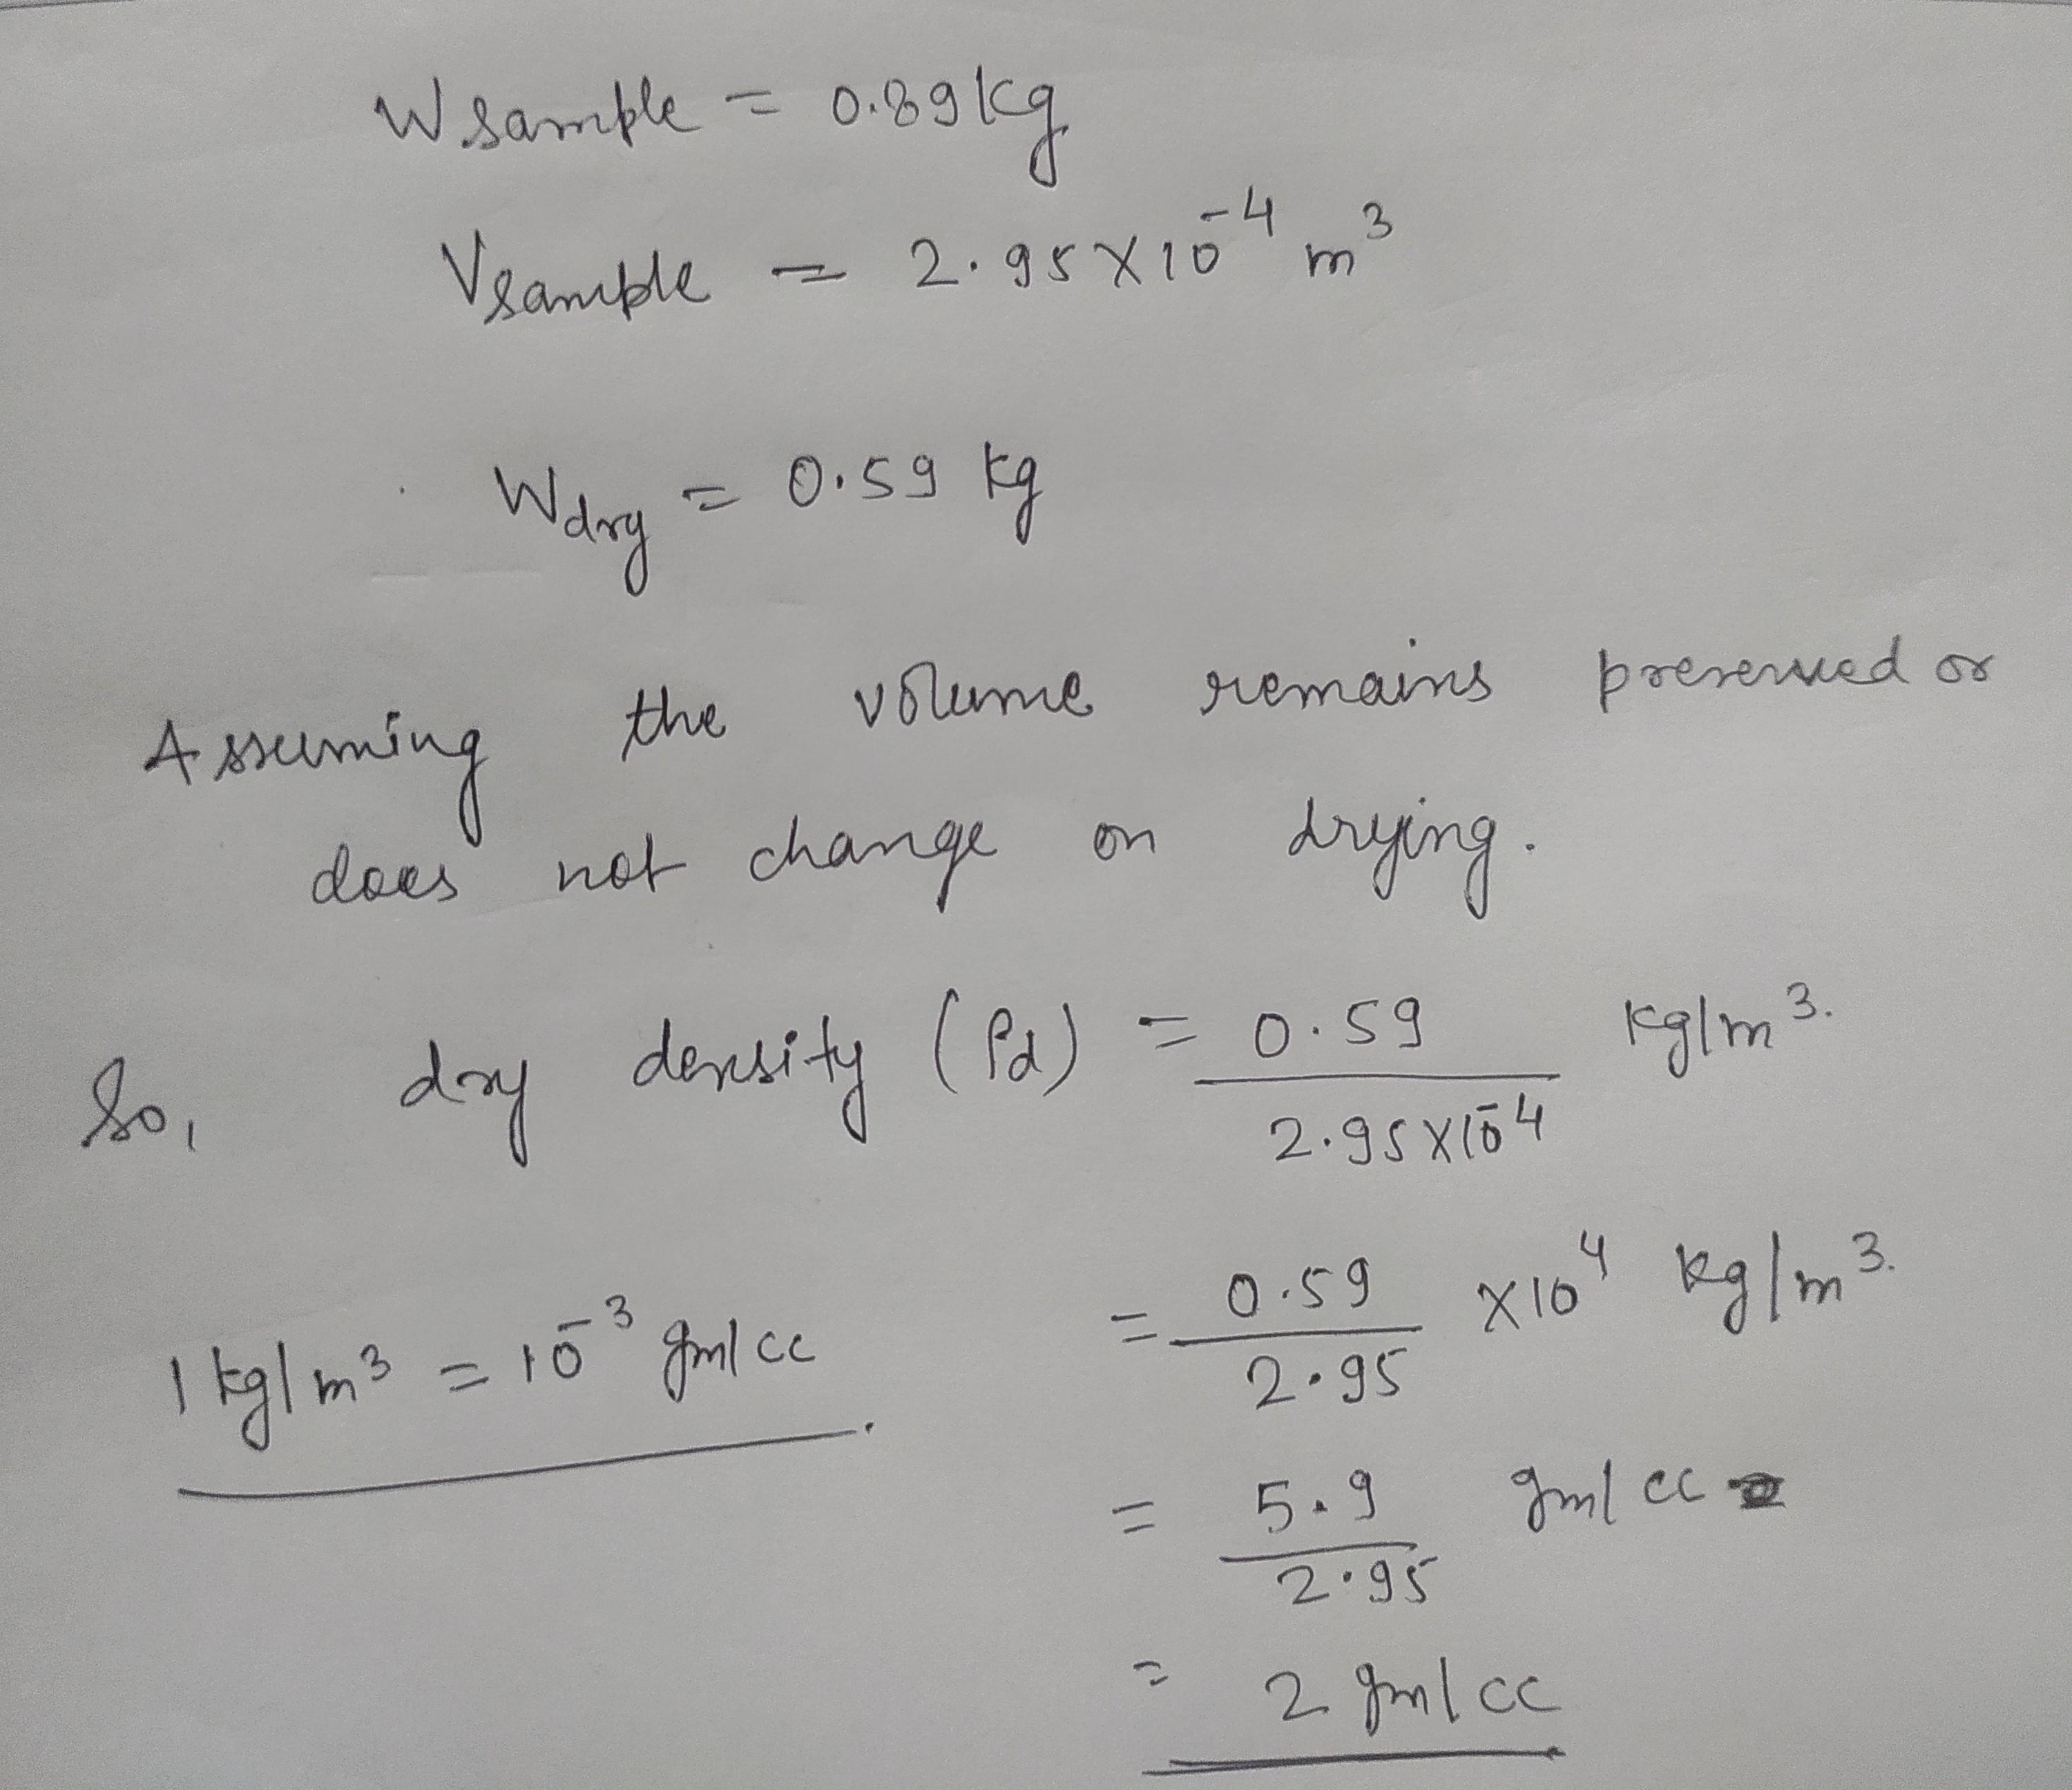 W sample = 0.89 kg
Vsample = 2.95 × 10⁻⁴ m³
Wdry = 0.59 kg
Assuming the volume remains preserved or
does not change on drying.
So, dry density (ρd) = 0.59 / 2.95×10⁻⁴ kg/m³.
= 0.59 / 2.95 ×10⁴ kg/m³.
1 kg/m³ = 10⁻³ gm/cc
= 5.9 / 2.95 gm/cc
= 2 gm/cc